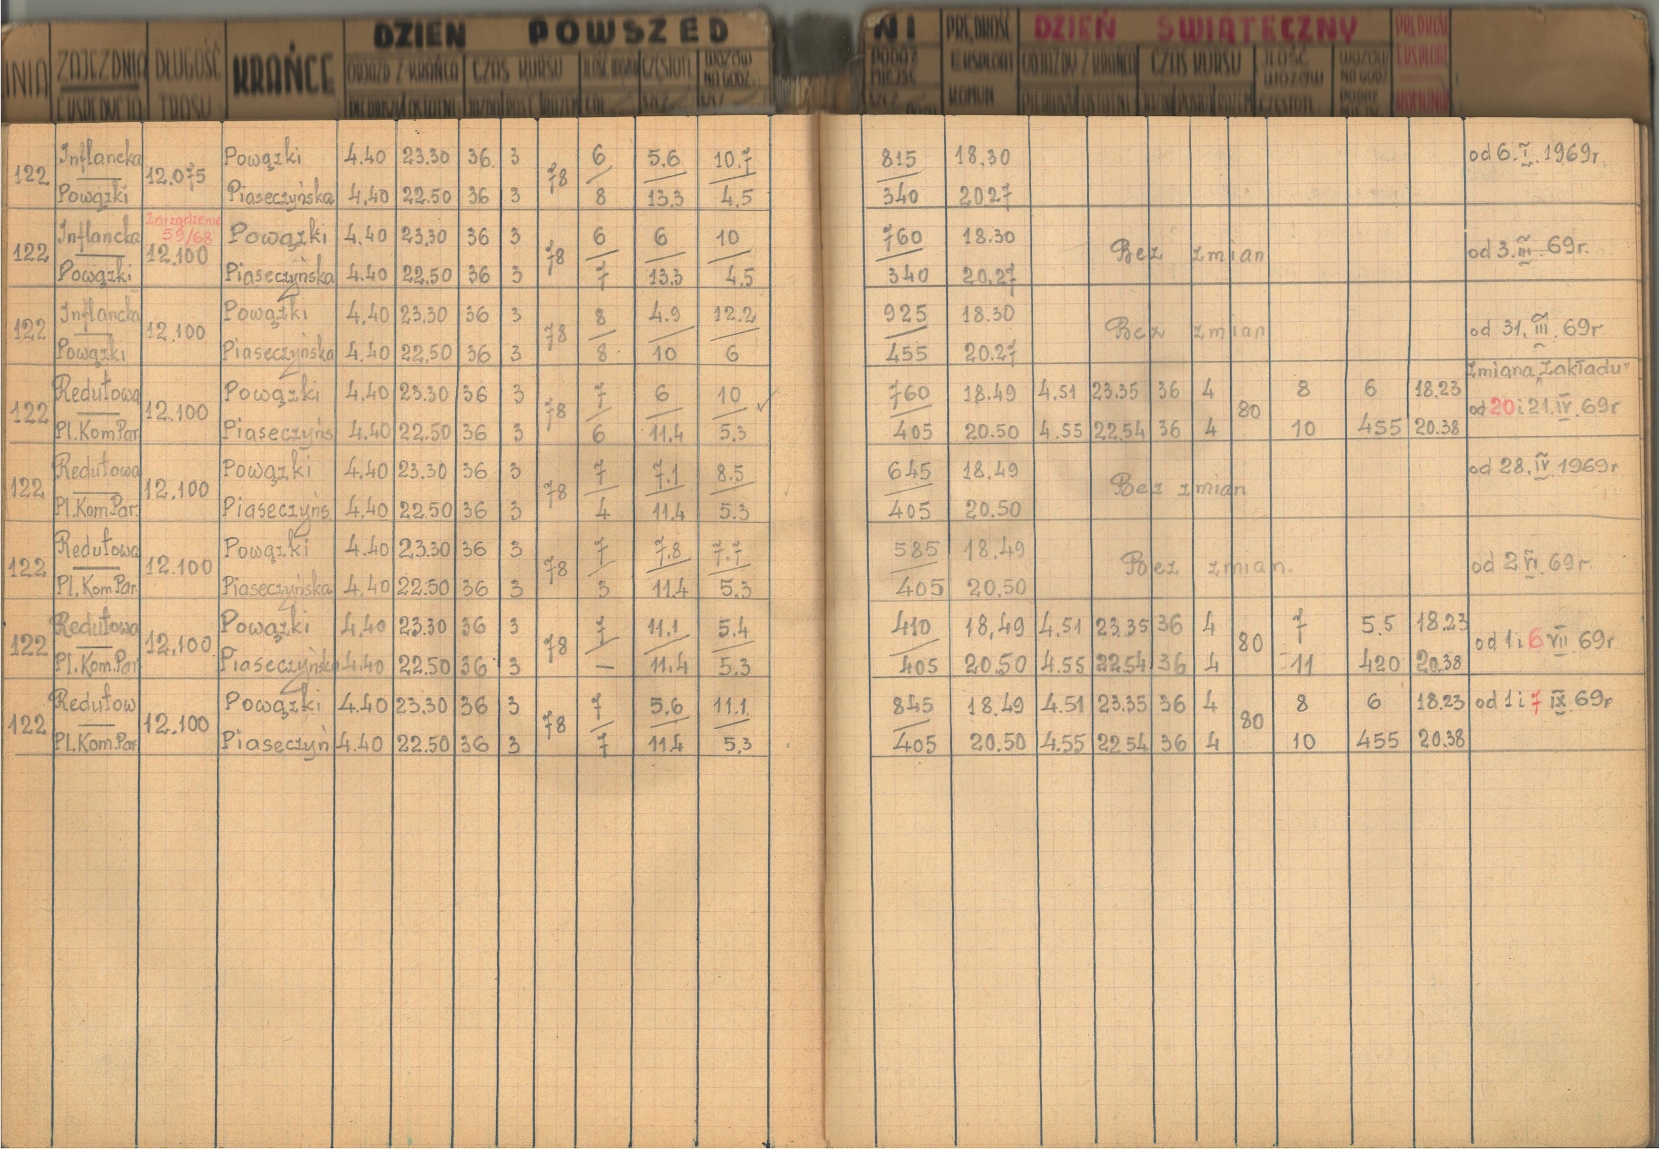 DZIEŃ POWSZEDNI DZIEŃ ŚWIĄTECZNY
ZAJEZDNIA DŁUGOŚĆ TRASY KRAŃCE
ODJAZD Z KRAŃCA CZAS KURSU
ODJAZDY Z KRAŃCA CZAS KURSU ILOŚĆ WOZÓW
Inflancka Powązki 4.40 23.30 36 3 6 5.6 10.7 815 18.30 od 6.I.1969r.
122 12.075 78
Powązki Piaseczyńska 4.40 22.50 36 3 8 13.3 4.5 340 20.27
Zarządzenie
59/68
Inflancka Powązki 4.40 23.30 36 3 6 6 10 760 18.30
122 12.100 78 Bez zmian od 3.III.69r.
Powązki Piaseczyńska 4.40 22.50 36 3 7 13.3 4.5 340 20.27
Inflancka Powązki 4.40 23.30 36 3 8 4.9 12.2 925 18.30
122 12.100 78 Bez zmian od 31.III.69r
Powązki Piaseczyńska 4.40 22.50 36 3 8 10 6 455 20.27
zmiana "Zakładu"
Redutowa Powązki 4.40 23.30 36 3 7 6 10 760 18.49 4.51 23.35 36 4 8 6 18.23
122 12.100 78 80 od 20 i 21.IV.69r
Pl.Kom.Par. Piaseczyńs 4.40 22.50 36 3 6 11.4 5.3 405 20.50 4.55 22.54 36 4 10 455 20.38
Redutowa Powązki 4.40 23.30 36 3 7 7.1 8.5 645 18.49 od 28.IV 1969r
122 12.100 78 Bez zmian
Pl.Kom.Par. Piaseczyńs 4.40 22.50 36 3 4 11.4 5.3 405 20.50
Redutowa Powązki 4.40 23.30 36 3 7 7.8 7.7 585 18.49
122 12.100 78 Bez zmian. od 2 VI.69r
Pl.Kom.Par Piaseczyńska 4.40 22.50 36 3 3 11.4 5.3 405 20.50
Redutowa Powązki 4.40 23.30 36 3 7 11.1 5.4 410 18.49 4.51 23.35 36 4 7 5.5 18.23
122 12.100 78 80 od 1 i 6 VII 69r
Pl.Kom.Par Piaseczyńsk 4.40 22.50 36 3 — 11.4 5.3 405 20.50 4.55 22.54 36 4 11 420 20.38
Redutow Powązki 4.40 23.30 36 3 7 5.6 11.1 845 18.49 4.51 23.35 36 4 8 6 18.23 od 1 i 7 IX 69r
122 12.100 78 80
Pl.Kom.Par Piaseczyń 4.40 22.50 36 3 7 11.4 5.3 405 20.50 4.55 22.54 36 4 10 455 20.38